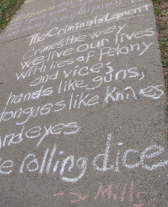 The Criminals Lament
Crimes the way
we live our lives
with lies of felony
and vices,
hands like guns,
tongues like Knives
and eyes
like rolling dice
Mills